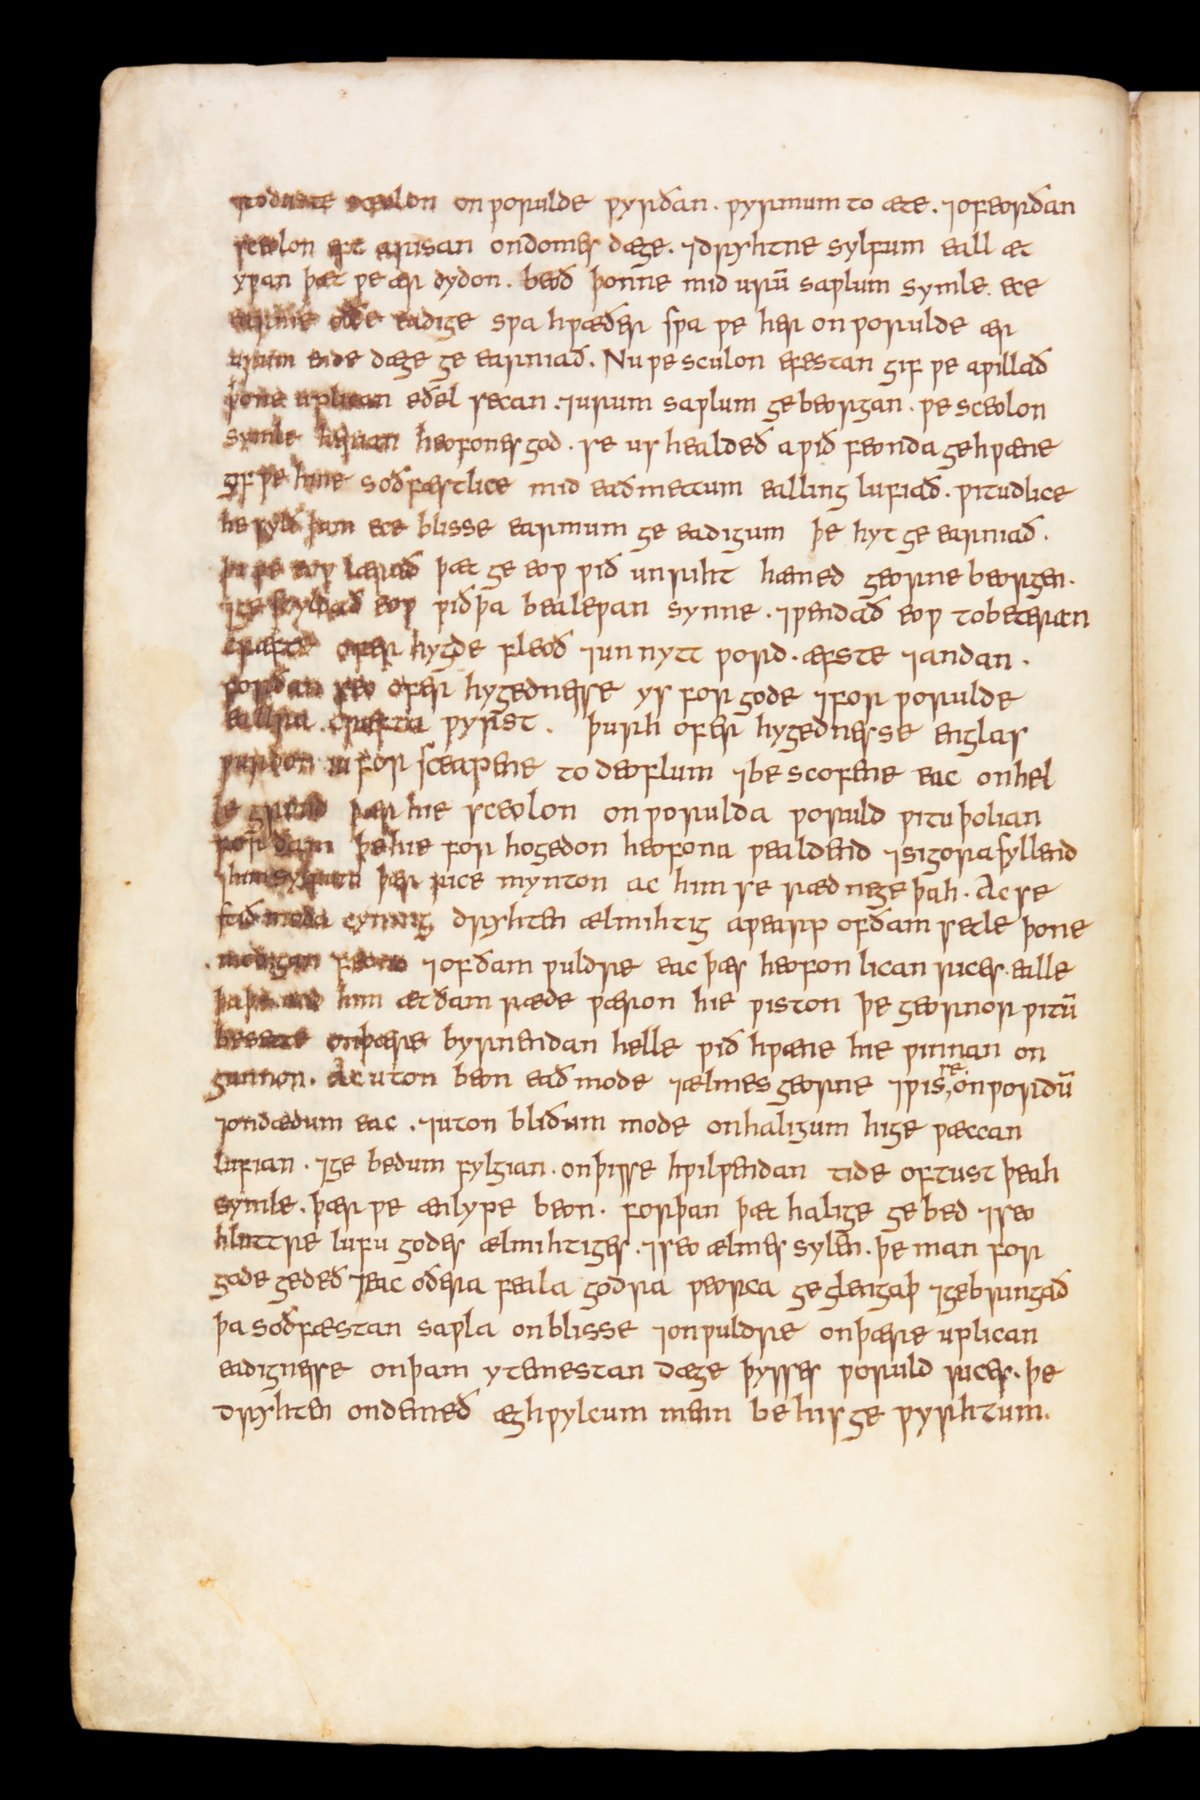 sceolon on worulde wyrðan . wyrmum to æte . ⁊ of eorðan
sceolon eft arisan on domes dæge . ⁊ drihtne sylfum eall æt
ywan þæt we ær dydon . beoð þonne mid urū sawlum symle . ece
earme oððe eadige swa hwæðer swa we her on worulde ær
urum ende dæge ge earniað . Nu we sculon efestan gif we a willað
þone uplican eðel secan . ⁊ urum sawlum ge beorgan . we sceolon
symle herian heofones god . se us healdeð a wið feonda ge hwæne
gif we hine soðfæstlice mid eaðmettum ealling lufiað . witudlice
he sylð þam ece blisse earmum ge eadigum þe hyt ge earniað .
þi we eow lærað þæt ge eow wið unriht hæmed georne beorgen .
⁊ ge scyldað eow wið þa bealewan synne . ⁊ wendað eow to beteran
cræfte ofer hygde fleoð ⁊ unnytt word . æfste ⁊ andan .
forðan seo ofer hygednesse ys for gode ⁊ for worulde
ealra cræfta wyrst . þurh ofer hygednesse englas
wurdon iu for sceapene to deoflum ⁊ be scofene eac on hel
le grund þær hie sceolon on worulda woruld witu þolian
for ðam þe hie for hogedon heofona wealdend ⁊ sigora syllend
⁊ him sylfum þær rice mynton ac him se ræd ne ge þah . Ac se
stið moda cyning drihten ælmihtig awearp of ðam setle þone
modigan feond ⁊ of ðam wuldre eac þæs heofon lican rices . ealle
þa þe mid him æt ðam ræde wæron hie wiston þe geornor witū
besette on þære byrnendan helle wið hwæne hie winnan on
gunnon . Ac uton beon eaðmode ⁊ ælmesgeorne ⁊ wisre, on wordū
⁊ on dædum eac . ⁊ uton bliðum mode on haligum hige wæccan
lufian . ⁊ ge bedum fylgian . on þisse hwilwendan tide oftust þeah
symle . þær we ænlype beon . forþan þæt halige ge bed ⁊ seo
hluttre lufu godes ælmihtiges . ⁊ seo ælmes sylen . þe man for
gode gedeð ⁊ eac oðera feala godra weorca ge glengaþ ⁊ gebringað
þa soðfæstan sawla on blisse ⁊ on wuldre on þære uplican
eadignesse on þam ytemestan dæge þysses woruld rices . þe
drihten on demeð æghwylcum men be his ge wyrhtum .